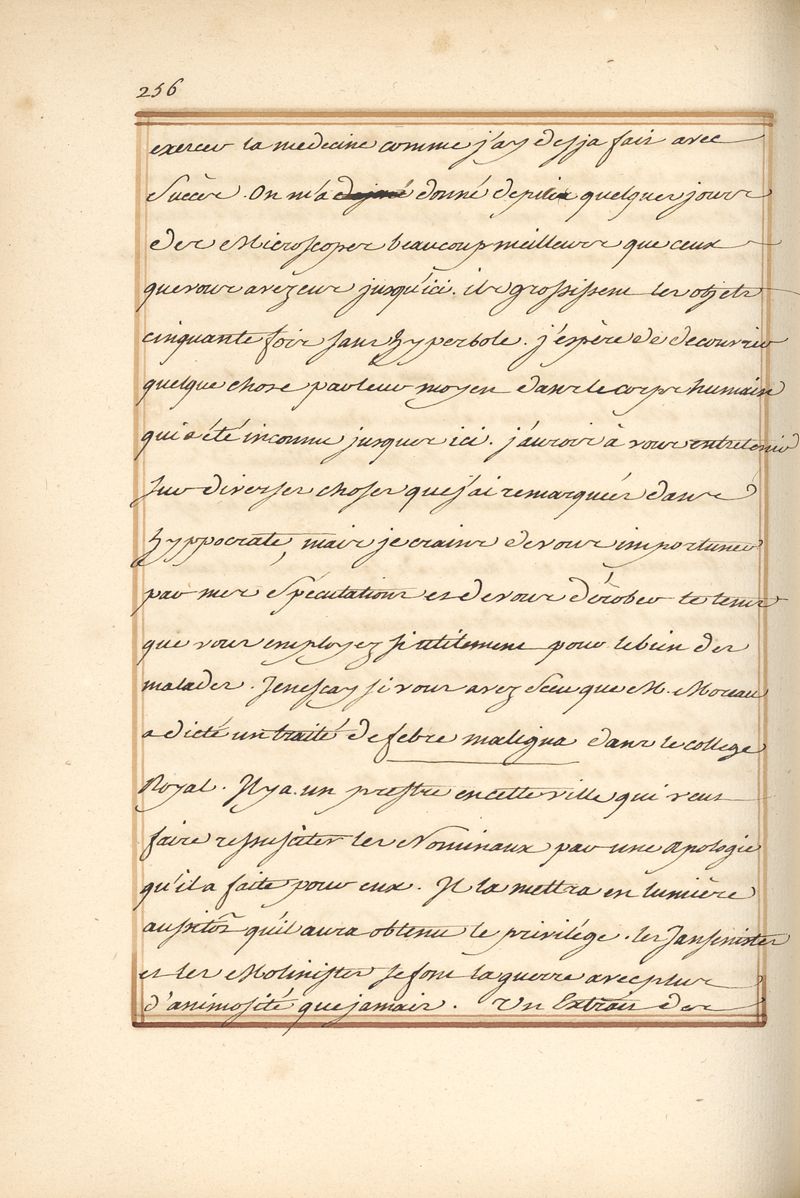 256
exercer la medecine comme j'ay desja fait avec
Succès. On m'a donné depuis quelques jours
des Microscopes beaucoup meilleurs que ceux
que vous avez eus jusqu'ici. ils grossissent les objets
cinquante fois sans hyperbole. j'espère de decouvrir
quelque chose par leur moyen dans le corps humain
qui a été inconnu jusques ici. j'aurois à vous entretenir
sur diverses choses que j'ai remarquées dans
hyppocrate, mais je crains de vous importuner
par mes Spéculations et de vous dérober le tems
que vous employez si utilement pour le bien des
malades. Je ne scay si vous avez Sceu que M. Moreau
a dicté un traité de febre maligna dans le college
Royal. Il y a un prestre en cette ville qui veut
faire ressusciter les Nominaux par une Apologie
qu'il a faite pour eux. Il la mettra en lumière
aussitôt qu'il aura obtenu le privilége. les Jansenistes
et les Molinistes se font la guerre avec plus
d'animosité que jamais. Un Extrait des